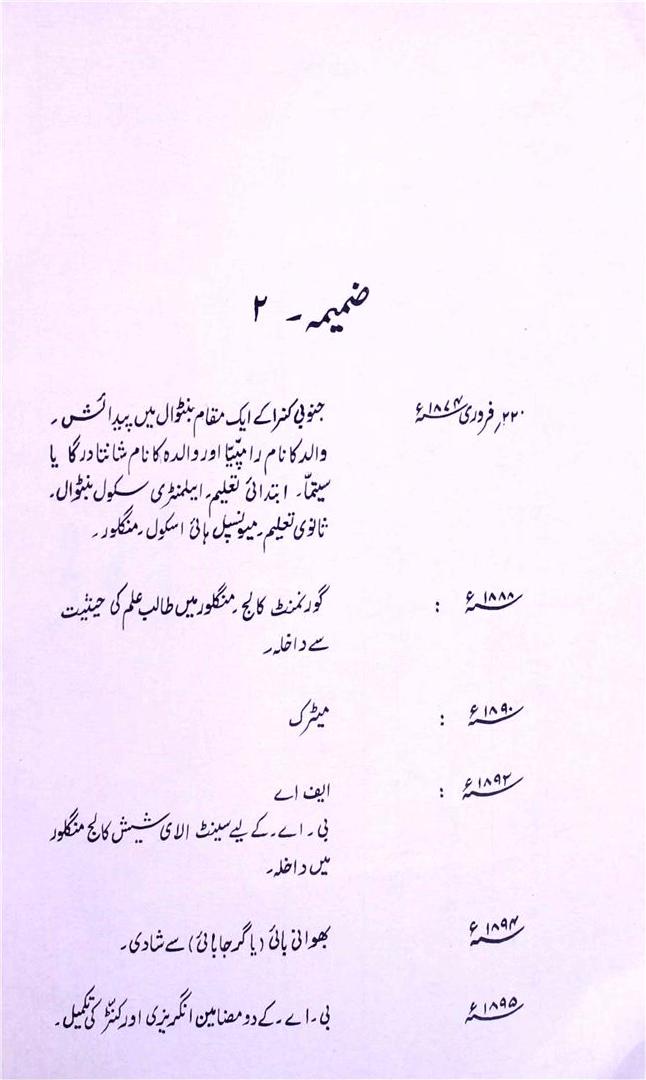 ضمیمہ ۔ ۲
۲۲؍ فروری ۱۸۷۴ء جنوبی کنرا کے ایک مقام بنٹوال میں پیدائش ۔
والد کا نام رامپیّا اور والدہ کا نام شانتا درگا یا
سیتمّا۔ ابتدائی تعلیم۔ ایلمنٹری سکول بنٹوال۔
ثانوی تعلیم۔ میونسپل ہائی اسکول۔ منگلور ۔
۱۸۸۸ء : گورنمنٹ کالج، منگلور میں طالب علم کی حیثیت
سے داخلہ۔
۱۸۹۰ء : میٹرک
۱۸۹۲ء : ایف اے
بی۔ اے۔ کے لیے سینٹ الای شیش کالج منگلور
میں داخلہ۔
۱۸۹۴ء بھوانی بائی (یا گرجا بائی) سے شادی۔
۱۸۹۵ء بی۔ اے۔ کے دو مضامین انگریزی اور کنّڑ کی تکمیل۔